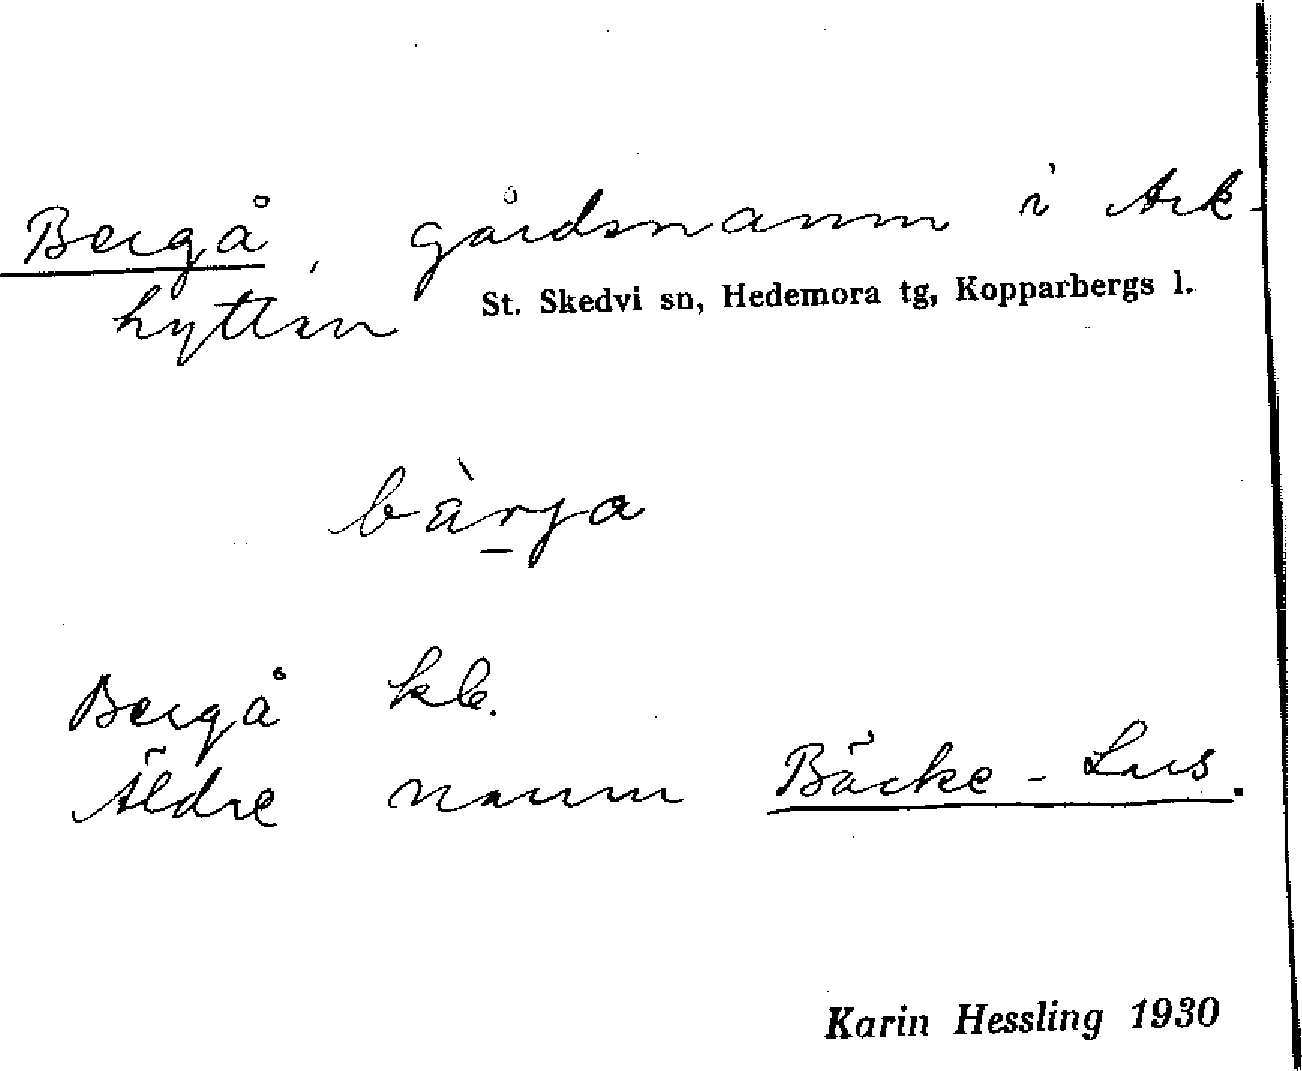 Bergå, gårdsnamn i Ark-
hyttan St. Skedvi sn, Hedemora tg, Kopparbergs l.
bä̀rja
Bergå kb.
Äldre namn Bäcke-Lars.
Karin Hessling 1930